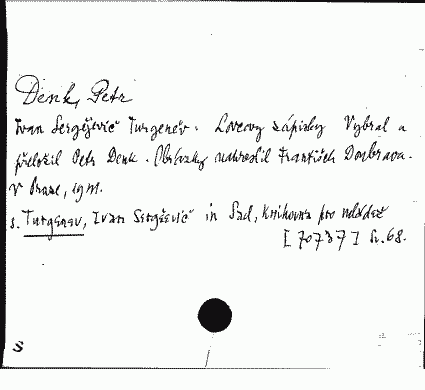 Denk, Petr
Ivan Sergějevič Turgeněv. Lovcovy zápisky Vybral a
přeložil Petr Denk. Obrázky nakreslil František Doubrava.
V Praze, 1911.
s. Turgenev, Ivan Sergěevič in Sad, Knihovna pro mládež
[70737] Sv. 68.
S